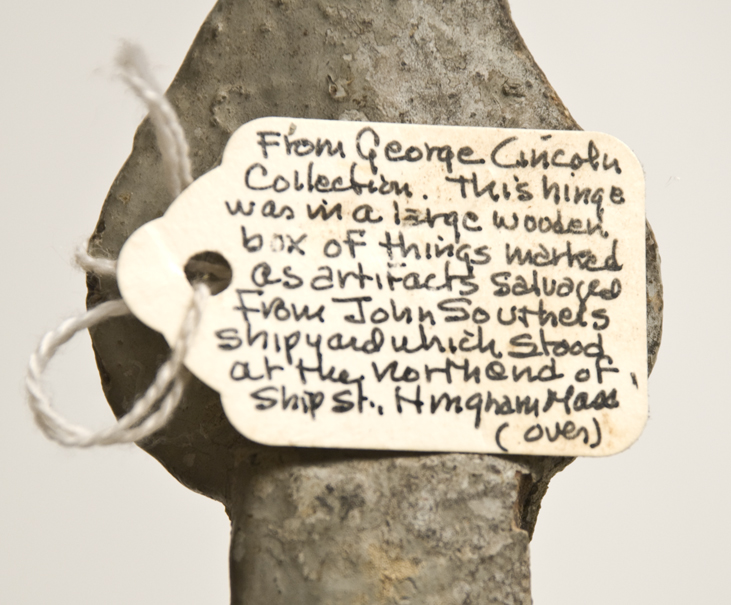 From George Lincoln
Collection. This hinge
was in a large wooden
box of things marked
as artifacts salvaged
From John Southers
shipyard which stood
at the north end of
Ship St., Hingham Mass
(over)